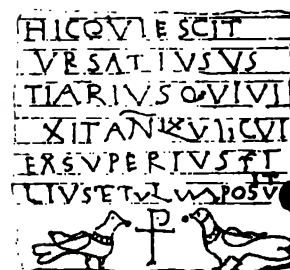 HICQVIESCIT
VRSATIVSVS
TIARIVSQVIVI
XITANLXVIICVI
EXSVPERIVSFI
LIVSTETVLVMPOSVIT